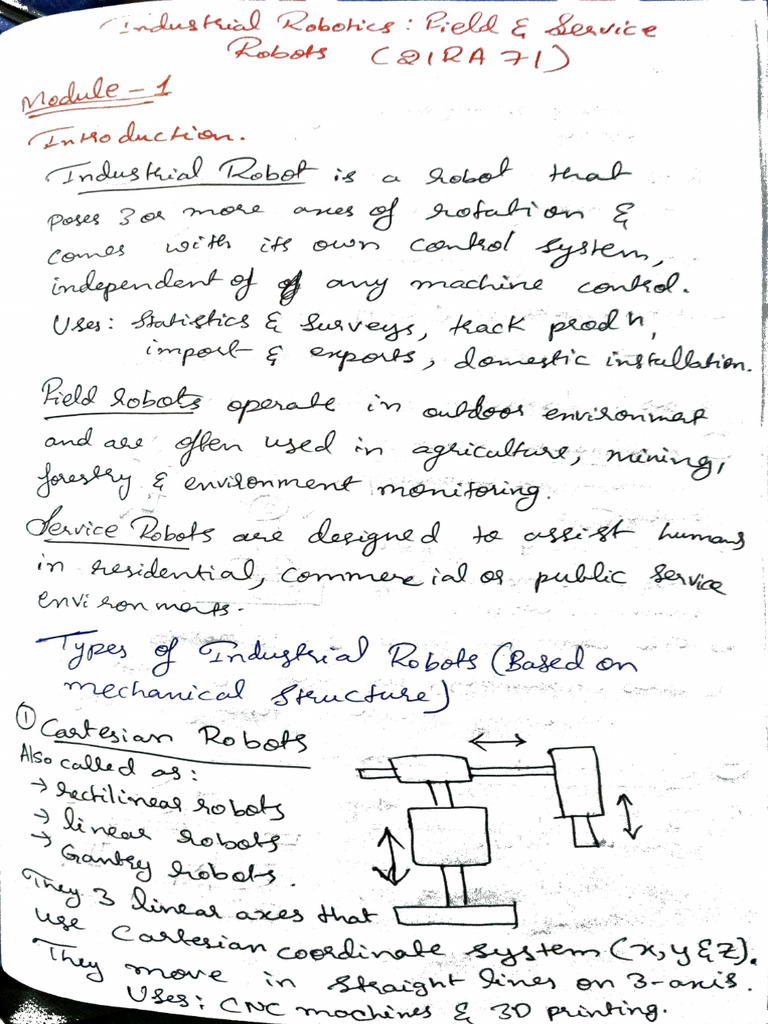 Industrial Robotics: Field & Service
Robots (21RA71)
Module - 1
Introduction.
Industrial Robot is a robot that
poses 3 or more axes of rotation &
comes with its own control system,
independent of any machine control.
Uses: Statistics & Surveys, track prodn,
import & exports, domestic installation.
Field robots operate in outdoor environmet
and are often used in agriculture, mining,
forestry & environment monitoring.
Service Robots are designed to assist humans
in residential, commercial or public service
environments.
Types of Industrial Robots (Based on
mechanical structure)
① Cartesian Robots
Also called as:
→ rectilinear robots
→ linear robots
→ Gantry robots.
They 3 linear axes that
use Cartesian coordinate system (x, y & z).
They move in straight lines on 3-axis.
Uses: CNC machines & 3D printing.